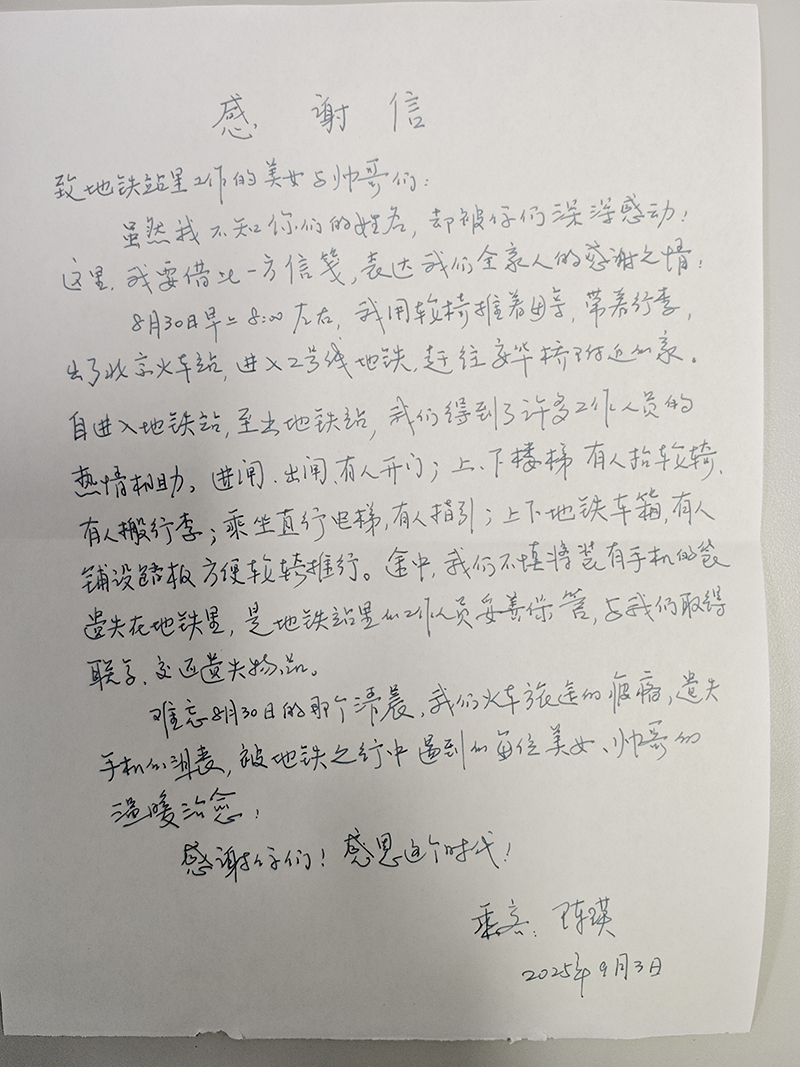 感谢信
致地铁站里工作的美女与帅哥们：
虽然我不知你们的姓名，却被你们深深感动！
这里，我要借此一方信笺，表达我们全家人的感谢之情！
8月30日早上8:00左右，我用轮椅推着母亲，带着行李，
出了北京火车站，进入2号线地铁，赶往 附近的家。
自进入地铁站，至出地铁站，我们得到了许多工作人员的
热情相助。进闸、出闸、有人开门；上、下楼梯 有人抬轮椅、
有人搬行李；乘坐直行电梯，有人指引；上下地铁车箱，有人
铺设踏板 方便轮椅推行。途中，我们不慎将装有手机的袋
遗失在地铁里，是地铁站里的工作人员妥善保管，与我们取得
联系、交还遗失物品。
难忘8月30日的那个清晨，我们火车旅途的疲惫，遗失
手机的沮丧，被地铁之行中遇到的每位美女、帅哥的
温暖治愈！
感谢你们！感恩这个时代！
乘客：陈瑛
2025年9月3日